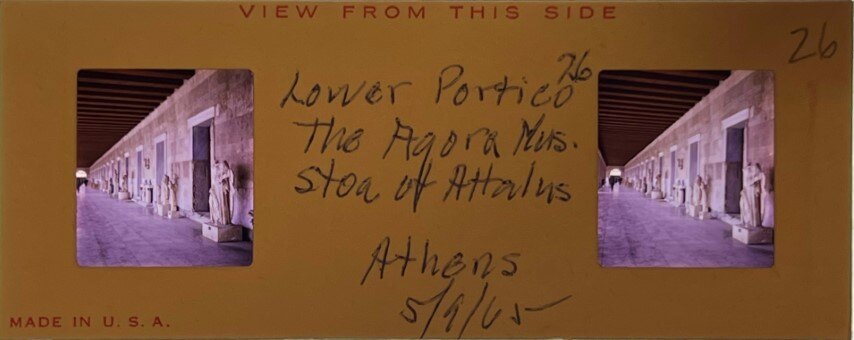 VIEW FROM THIS SIDE
26
Lower Portico 26
The Agora Mus.
Stoa of Attalus
Athens
5/9/65
MADE IN U.S.A.